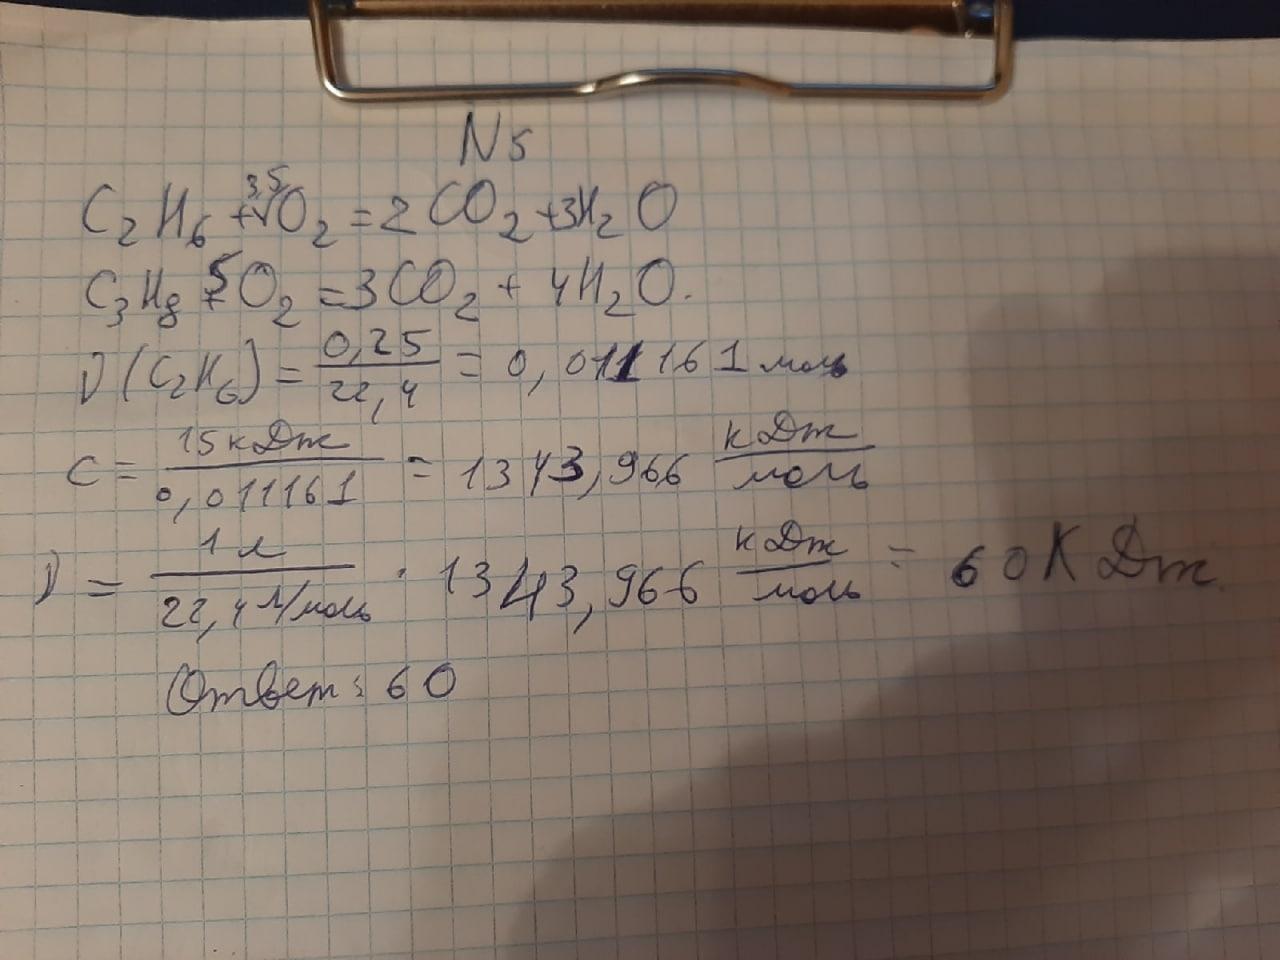 N5
C2H6 + 3,5O2 = 2CO2 + 3H2O
C3H8 + 5O2 = 3CO2 + 4H2O.
ν(C2H6) = 0,25/22,4 = 0,011161 моль
C = 15 кДж/0,011161 = 1343,966 кДж/моль
ν = 1 л/22,4 л/моль · 1343,966 кДж/моль = 60 КДж.
Ответ: 60